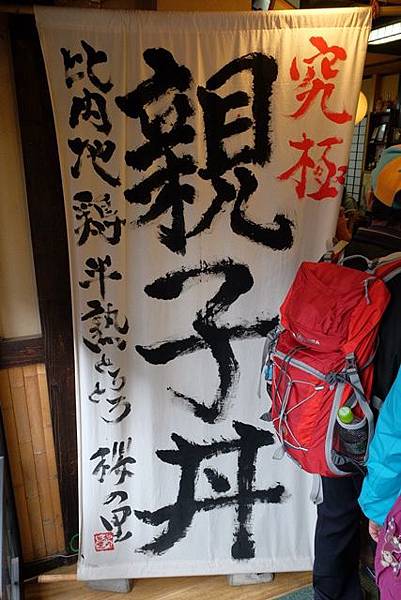 究極
親子丼
比内地鶏半熟とろとろ 桜の里